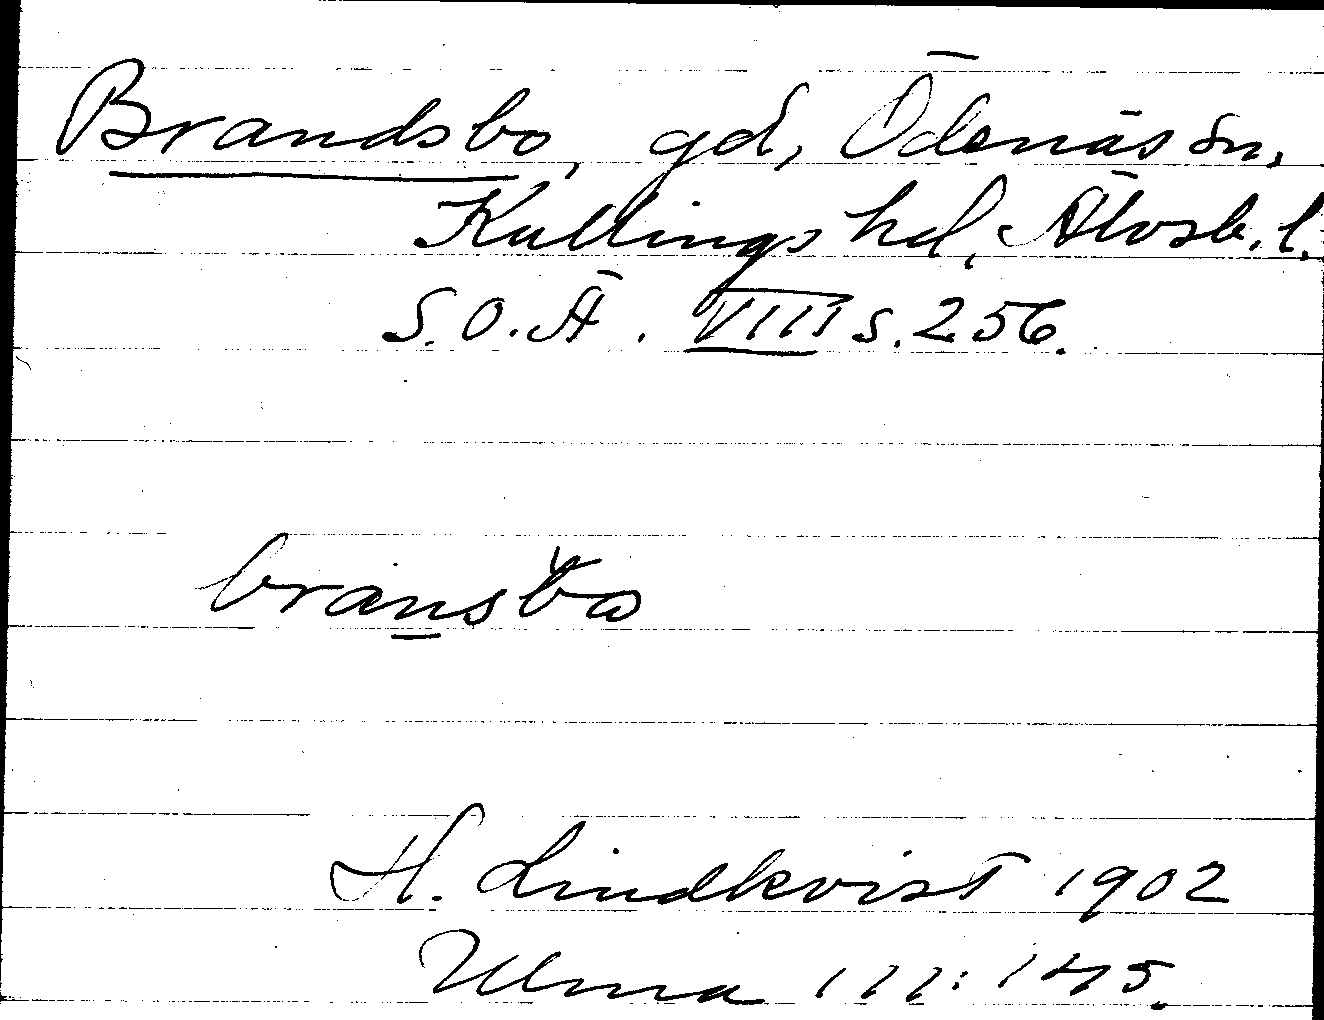 Brandsbo, gd, Ödenäs sn,
Kullings hd, Älvsb. l.
S.O.Ä. VIII s. 256.
bransbo
H. Lindkvist 1902
Ulma 111:145.